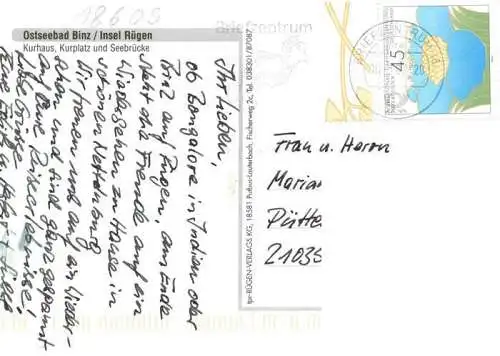 18605
Ostseebad Binz / Insel Rügen
Kurhaus, Kurplatz und Seebrücke
Ihr Lieben,
ob Bangalore in Indien oder
Binz auf Rügen, am Ende
steht die Freude auf ein
Wiedersehen zu Hause in
schönen
Wir freuen uns auf ein Wieder-
sehen und sind ganz gespannt
auf Eure Reiseerlebnisse,
Liebe Grüsse
tpr-RÜGEN-VERLAGS KG, 18581 Putbus-Lauterbach, Fischerweg 2c, Tel. 038301/87087
Briefzentrum
BRIEFZENTRUM
45
Frau u. Herrn
Marian
Pütte
21035